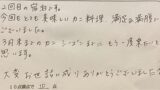 2回目の宿泊です。
今回もとても美味しいカニ料理、満足な夜膳に
ございました。
3月末までのカニシーズンにもう一度来たいと
思います。
大変お世話に成りありがとうございました
10点満点で 10 点